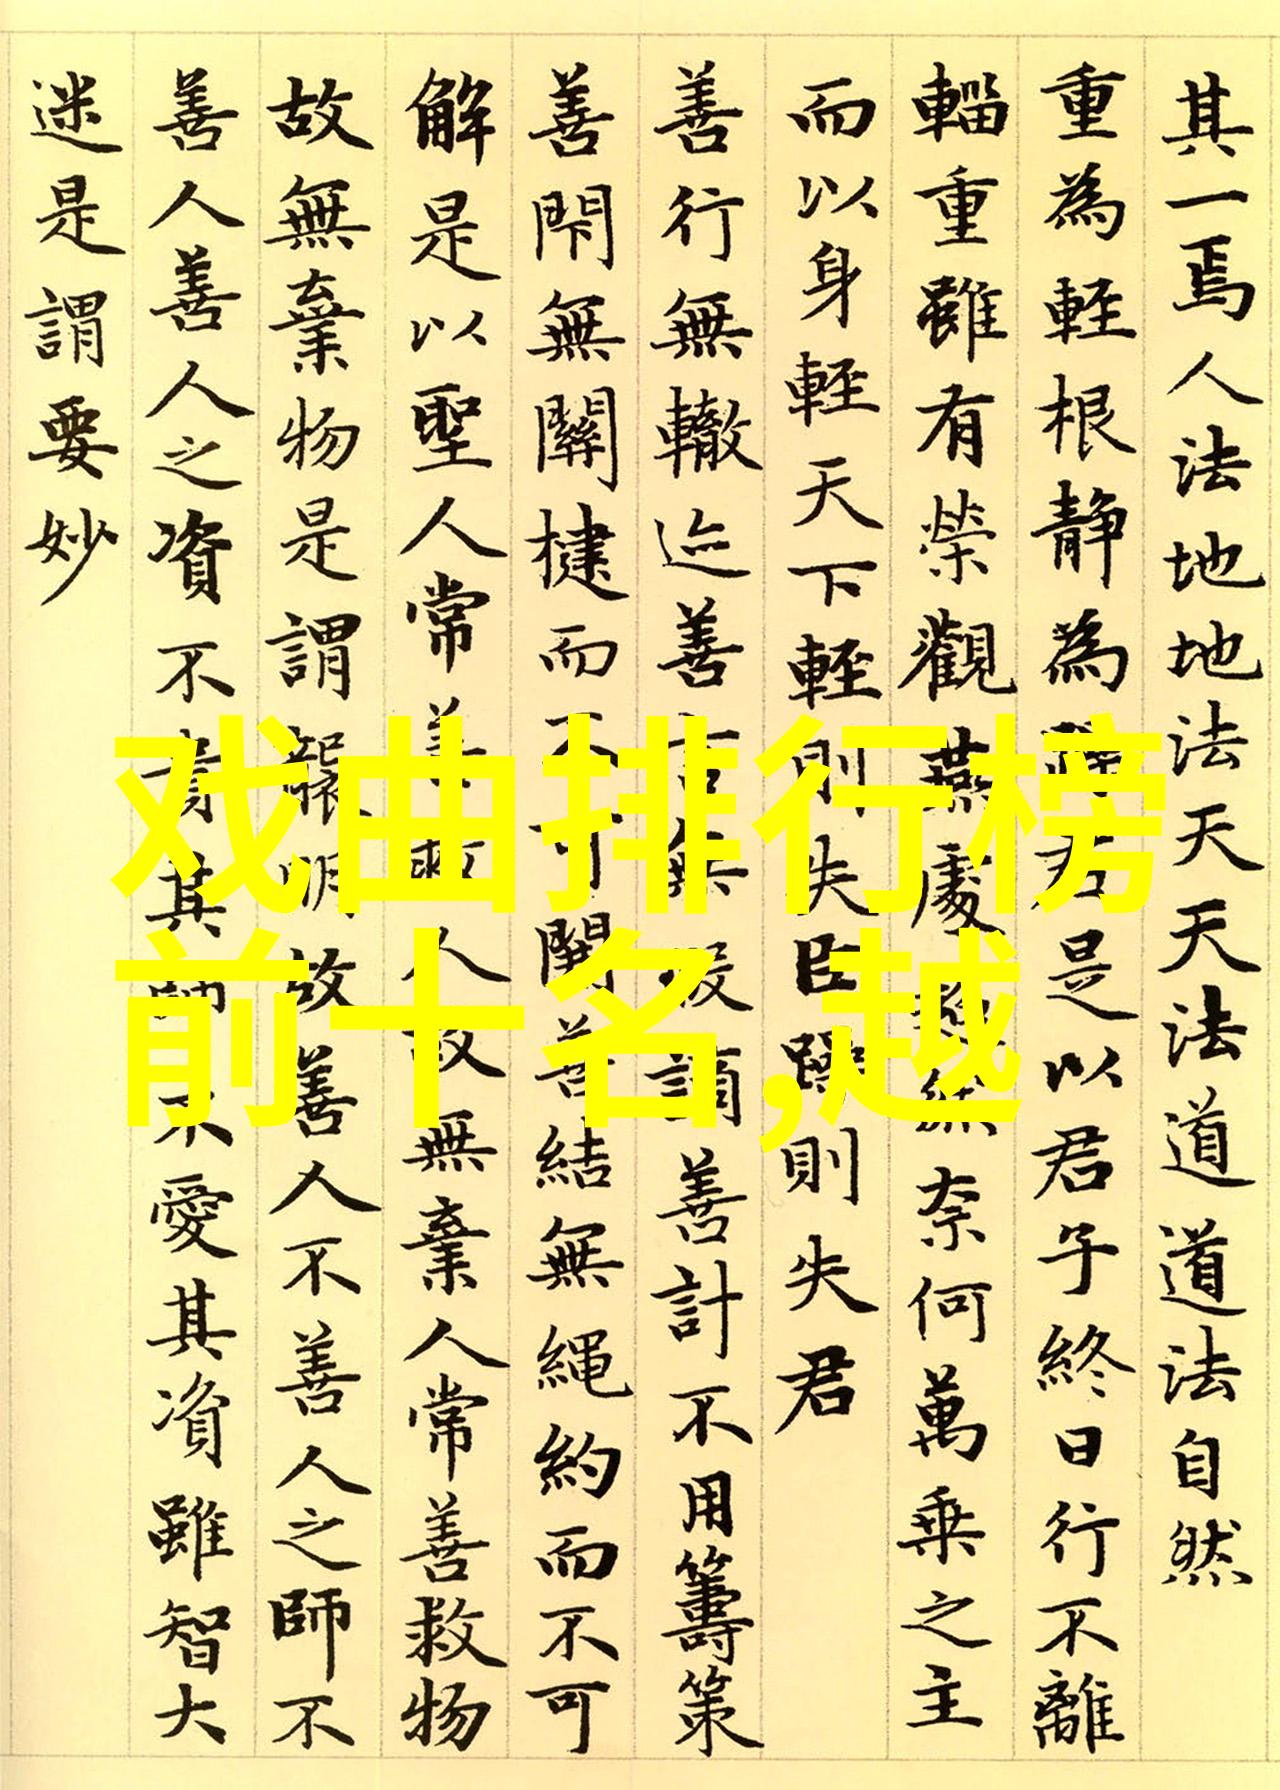 其一焉人法地地法天天法道道法自然
重為輕根静為躁君是以君子終日行不離
輜重雖有榮觀燕處超然奈何萬乘之主
而以身輕天下輕則失臣躁則失君
善行無轍迹善言無瑕讁善計不用籌策
善閇無關楗而不可開善結無繩約而不可
解是以聖人常善救人故無棄人常善救物
故無棄物是謂襲明故善人不善人之師不
善人善人之資不貴其師不愛其資雖智大
迷是謂要妙
戏曲排行榜
前十名,越